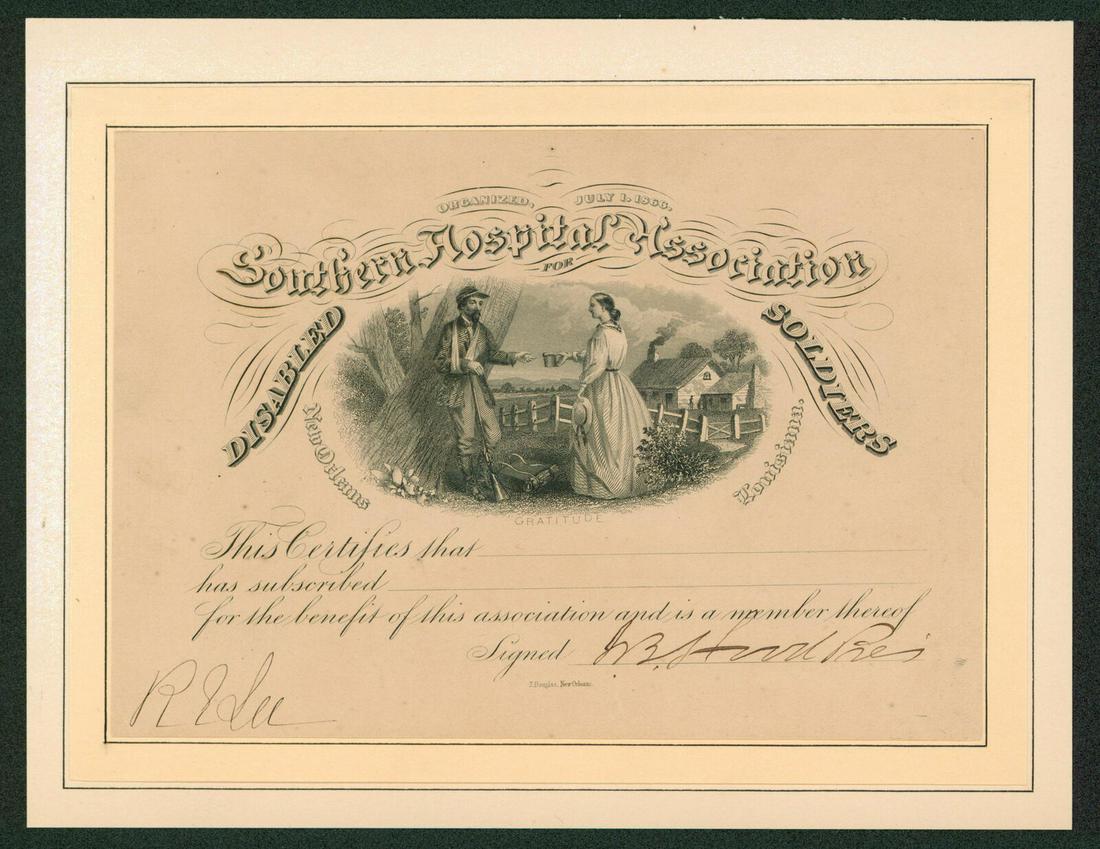 ORGANIZED, JULY 1. 1866.
Southern Hospital Association
FOR
DISABLED SOLDIERS
New Orleans Louisiana.
GRATITUDE
This Certifies that
has subscribed
for the benefit of this association and is a member thereof
Signed J B Hood Pres
J. Douglas, New Orleans.
R E Lee